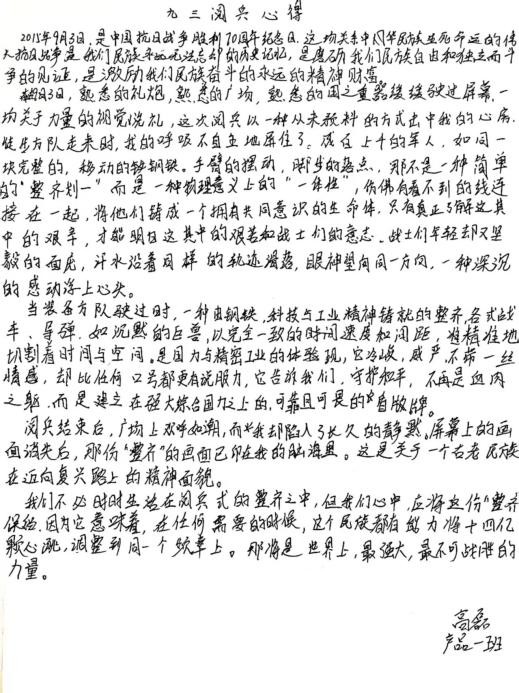 九三阅兵心得
2015年9月3日,是中国抗日战争胜利70周年纪念日。这场关系中华民族生死存亡的伟
大抗日战争是我们民族永远无法忘却的历史记忆,是磨砺我们民族自由和独立而斗
争的见证,是激励我们民族奋斗的永远的精神财富。
9月3日,熟悉的礼炮,熟悉的广场,熟悉的国之重器缓缓驶过屏幕,一
场关于力量的视觉洗礼,这次阅兵以一种从未预料的方式击中我的心房。
徒步方队走来时,我的呼吸不自主地屏住了。成百上千的军人,如同一
块完整的,移动的钢铁。手臂的摆动,脚步的落点,那不是一种简单
的"整齐划一"而是一种物理意义上的"一体性",仿佛有看不到的线连
接在一起,将他们铸成一个拥有共同意识的生命体。只有真正了解这其
中的艰辛,才能明白这其中的艰苦和战士们的意志。战士们年轻却又坚
毅的面庞,汗水沿着同样的轨迹滑落,眼神望向同一方向,一种深沉
的感动浮上心头。
当装备方队驶过时,一种由钢铁,科技与工业精神铸就的整齐,各式战
车、导弹,如沉默的巨兽,以完全一致的时间速度和间距,精准地
切割着时间与空间。是国力与精密工业的体验现,它冷峻,威严不带一丝
情感,却比任何口号都更有说服力,它告诉我们,守护和平,不再是血肉
之躯,而是建立在强大综合国力之上的,可靠且可畏的盾牌。
阅兵结束后,广场上欢呼如潮,而我却陷入了长久的静默。屏幕上的画
面消失后,那份"整齐"的画面已印在我的脑海里。这是关于一个古老民族
在迈向复兴路上的精神面貌。
我们不必时时生活在阅兵式的整齐之中,但我们心中,应将这份"整齐
保验,因为它意味着,在任何需要的时候,这个民族都有能力将十四亿
颗心跳,调整到同一个频率上。那将是世界上,最强大,最不可战胜的
力量。
高磊
产品一班